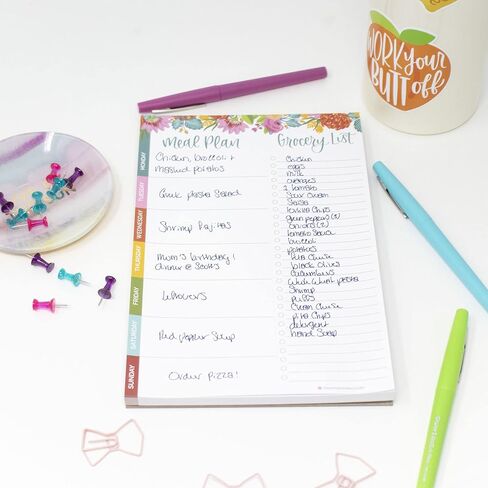 WORK your
BUTT off
Meal Plan
MONDAY
Chicken, broccoli +
mashed potatoes
TUESDAY
Greek pasta Salad
WEDNESDAY
Shrimp Fajitas
THURSDAY
Mom's birthday!
dinner @
FRIDAY
Leftovers
SATURDAY
Red pepper Soup
SUNDAY
Order pizza!
Grocery List
Chicken
eggs
milk
oranges
tomato
Sour Cream
Salsa
tortilla Chips
onions (2)
tomato Sauce
broccoli
potatoes
feta Cheese
black olives
Cucumbers
Whole Wheat pasta
Shrimp
Cream Cheese
pita Chips
detergent
hand Soap